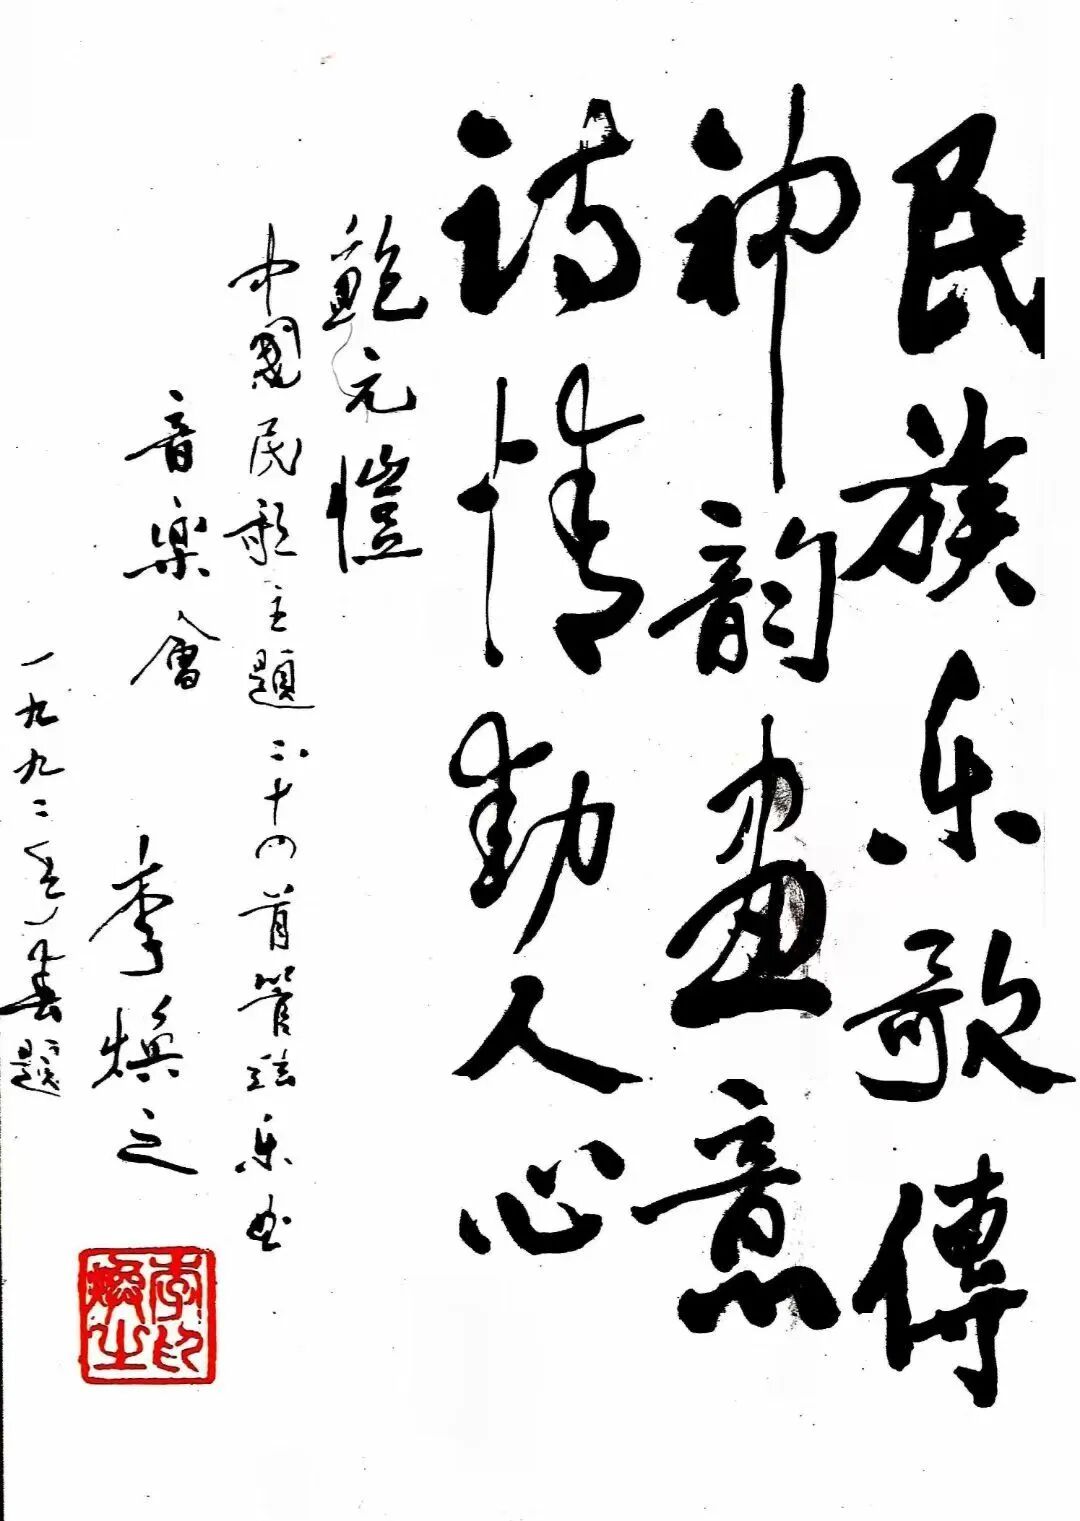 民族乐歌傳
神韵画意
诗情動人心
鲍元愷
中國民歌主題二十四首管弦乐曲
音樂會
李焕之
一九九二年春題
李焕之印